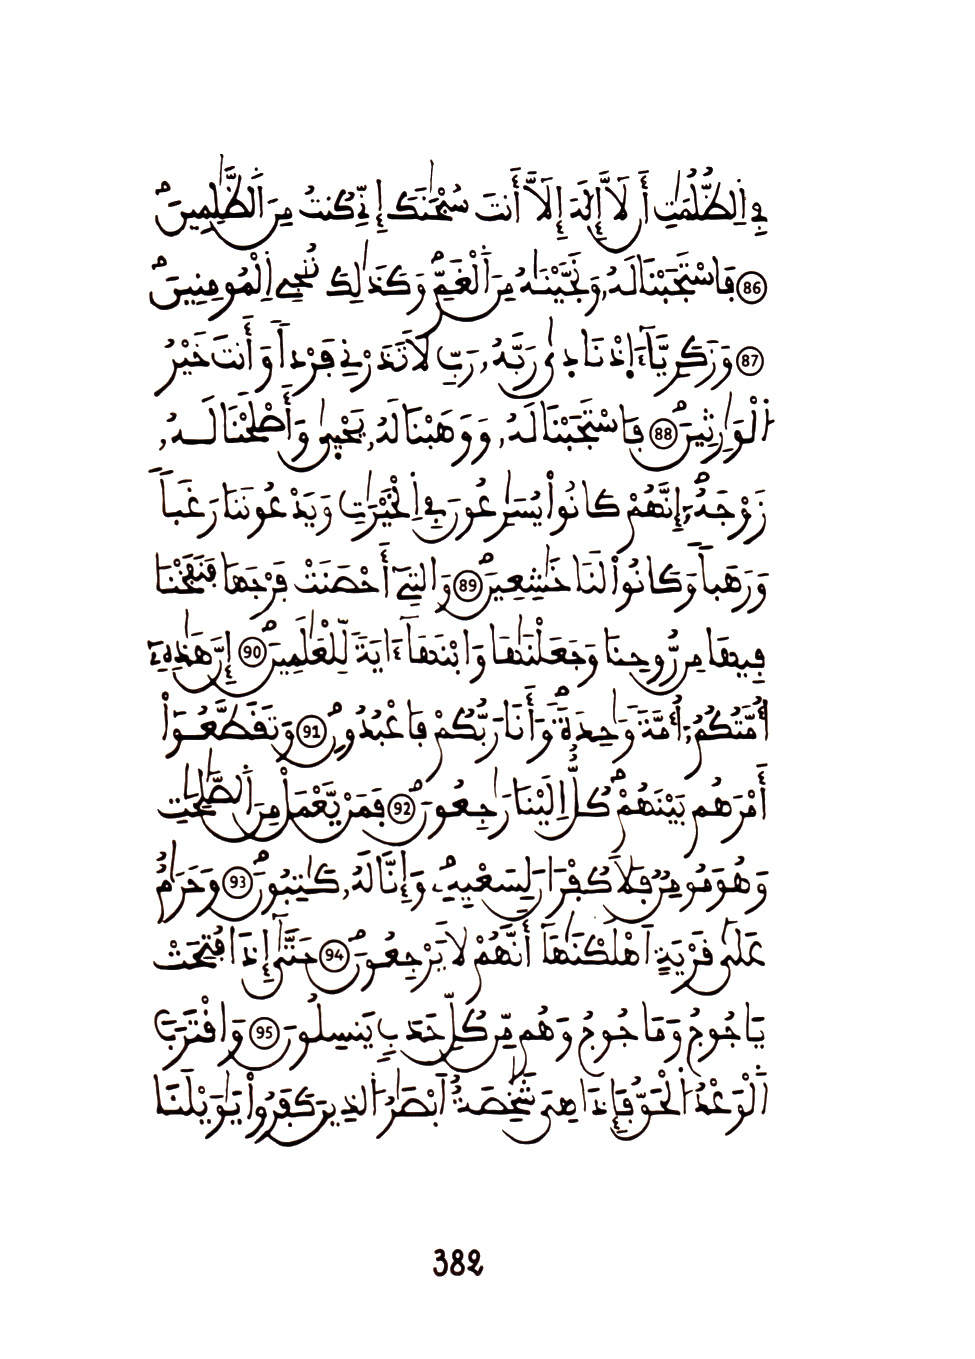 فِي اِ۬لظُّلُمَٰتِ أَن لَّآ إِلَٰهَ إِلَّآ أَنتَ سُبْحَٰنَكَ إِنِّے كُنتُ مِنَ اَ۬لظَّٰلِمِينَۖ
86 فَاسْتَجَبْنَا لَهُۥ وَنَجَّيْنَٰهُ مِنَ اَ۬لْغَمِّۖ وَكَذَٰلِكَ نُۨجِے اِ۬لْمُومِنِينَۖ
87 وَزَكَرِيَّآءَ اِذْ نَادَىٰ رَبَّهُۥ رَبِّ لَا تَذَرْنِے فَرْداٗ وَأَنتَ خَيْرُ
اُ۬لْوَٰرِثِينَۖ 88 فَاسْتَجَبْنَا لَهُۥ وَوَهَبْنَا لَهُۥ يَحْيَىٰ وَأَصْلَحْنَا لَهُۥ
زَوْجَهُۥٓۖ إِنَّهُمْ كَانُواْ يُسَٰرِعُونَ فِي اِ۬لْخَيْرَٰتِ وَيَدْعُونَنَا رَغَباٗ
وَرَهَباٗ وَكَانُواْ لَنَا خَٰشِعِينَۖ 89 وَالتِےٓ أَحْصَنَتْ فَرْجَهَا فَنَفَخْنَا
فِيهَا مِن رُّوحِنَا وَجَعَلْنَٰهَا وَابْنَهَآ ءَايَةٗ لِّلْعَٰلَمِينَۖ 90 إِنَّ هَٰذِهِۦٓ
أُمَّتُكُمُۥٓ أُمَّةٗ وَٰحِدَةٗۖ وَأَنَا رَبُّكُمْ فَاعْبُدُونِۖ 91 وَتَقَطَّعُوٓاْ
أَمْرَهُم بَيْنَهُمْۖ كُلٌّ اِلَيْنَا رَٰجِعُونَۖ 92 فَمَنْ يَّعْمَلْ مِنَ اَ۬لصَّٰلِحَٰتِ
وَهُوَ مُومِنٞ فَلَا كُفْرَانَ لِسَعْيِهِۦۖ وَإِنَّا لَهُۥ كَٰتِبُونَۖ 93 وَحَرَٰمٌ
عَلَىٰ قَرْيَةٍ اَهْلَكْنَٰهَآ أَنَّهُمْ لَا يَرْجِعُونَۖ 94 حَتَّىٰٓ إِذَا فُتِحَتْ
يَاجُوجُ وَمَاجُوجُ وَهُم مِّن كُلِّ حَدَبٖ يَنسِلُونَ 95 وَاقْتَرَبَ
اَ۬لْوَعْدُ اُ۬لْحَقُّ فَإِذَا هِيَ شَٰخِصَةٌ اَبْصَٰرُ اُ۬لذِينَ كَفَرُواْ يَٰوَيْلَنَا
382